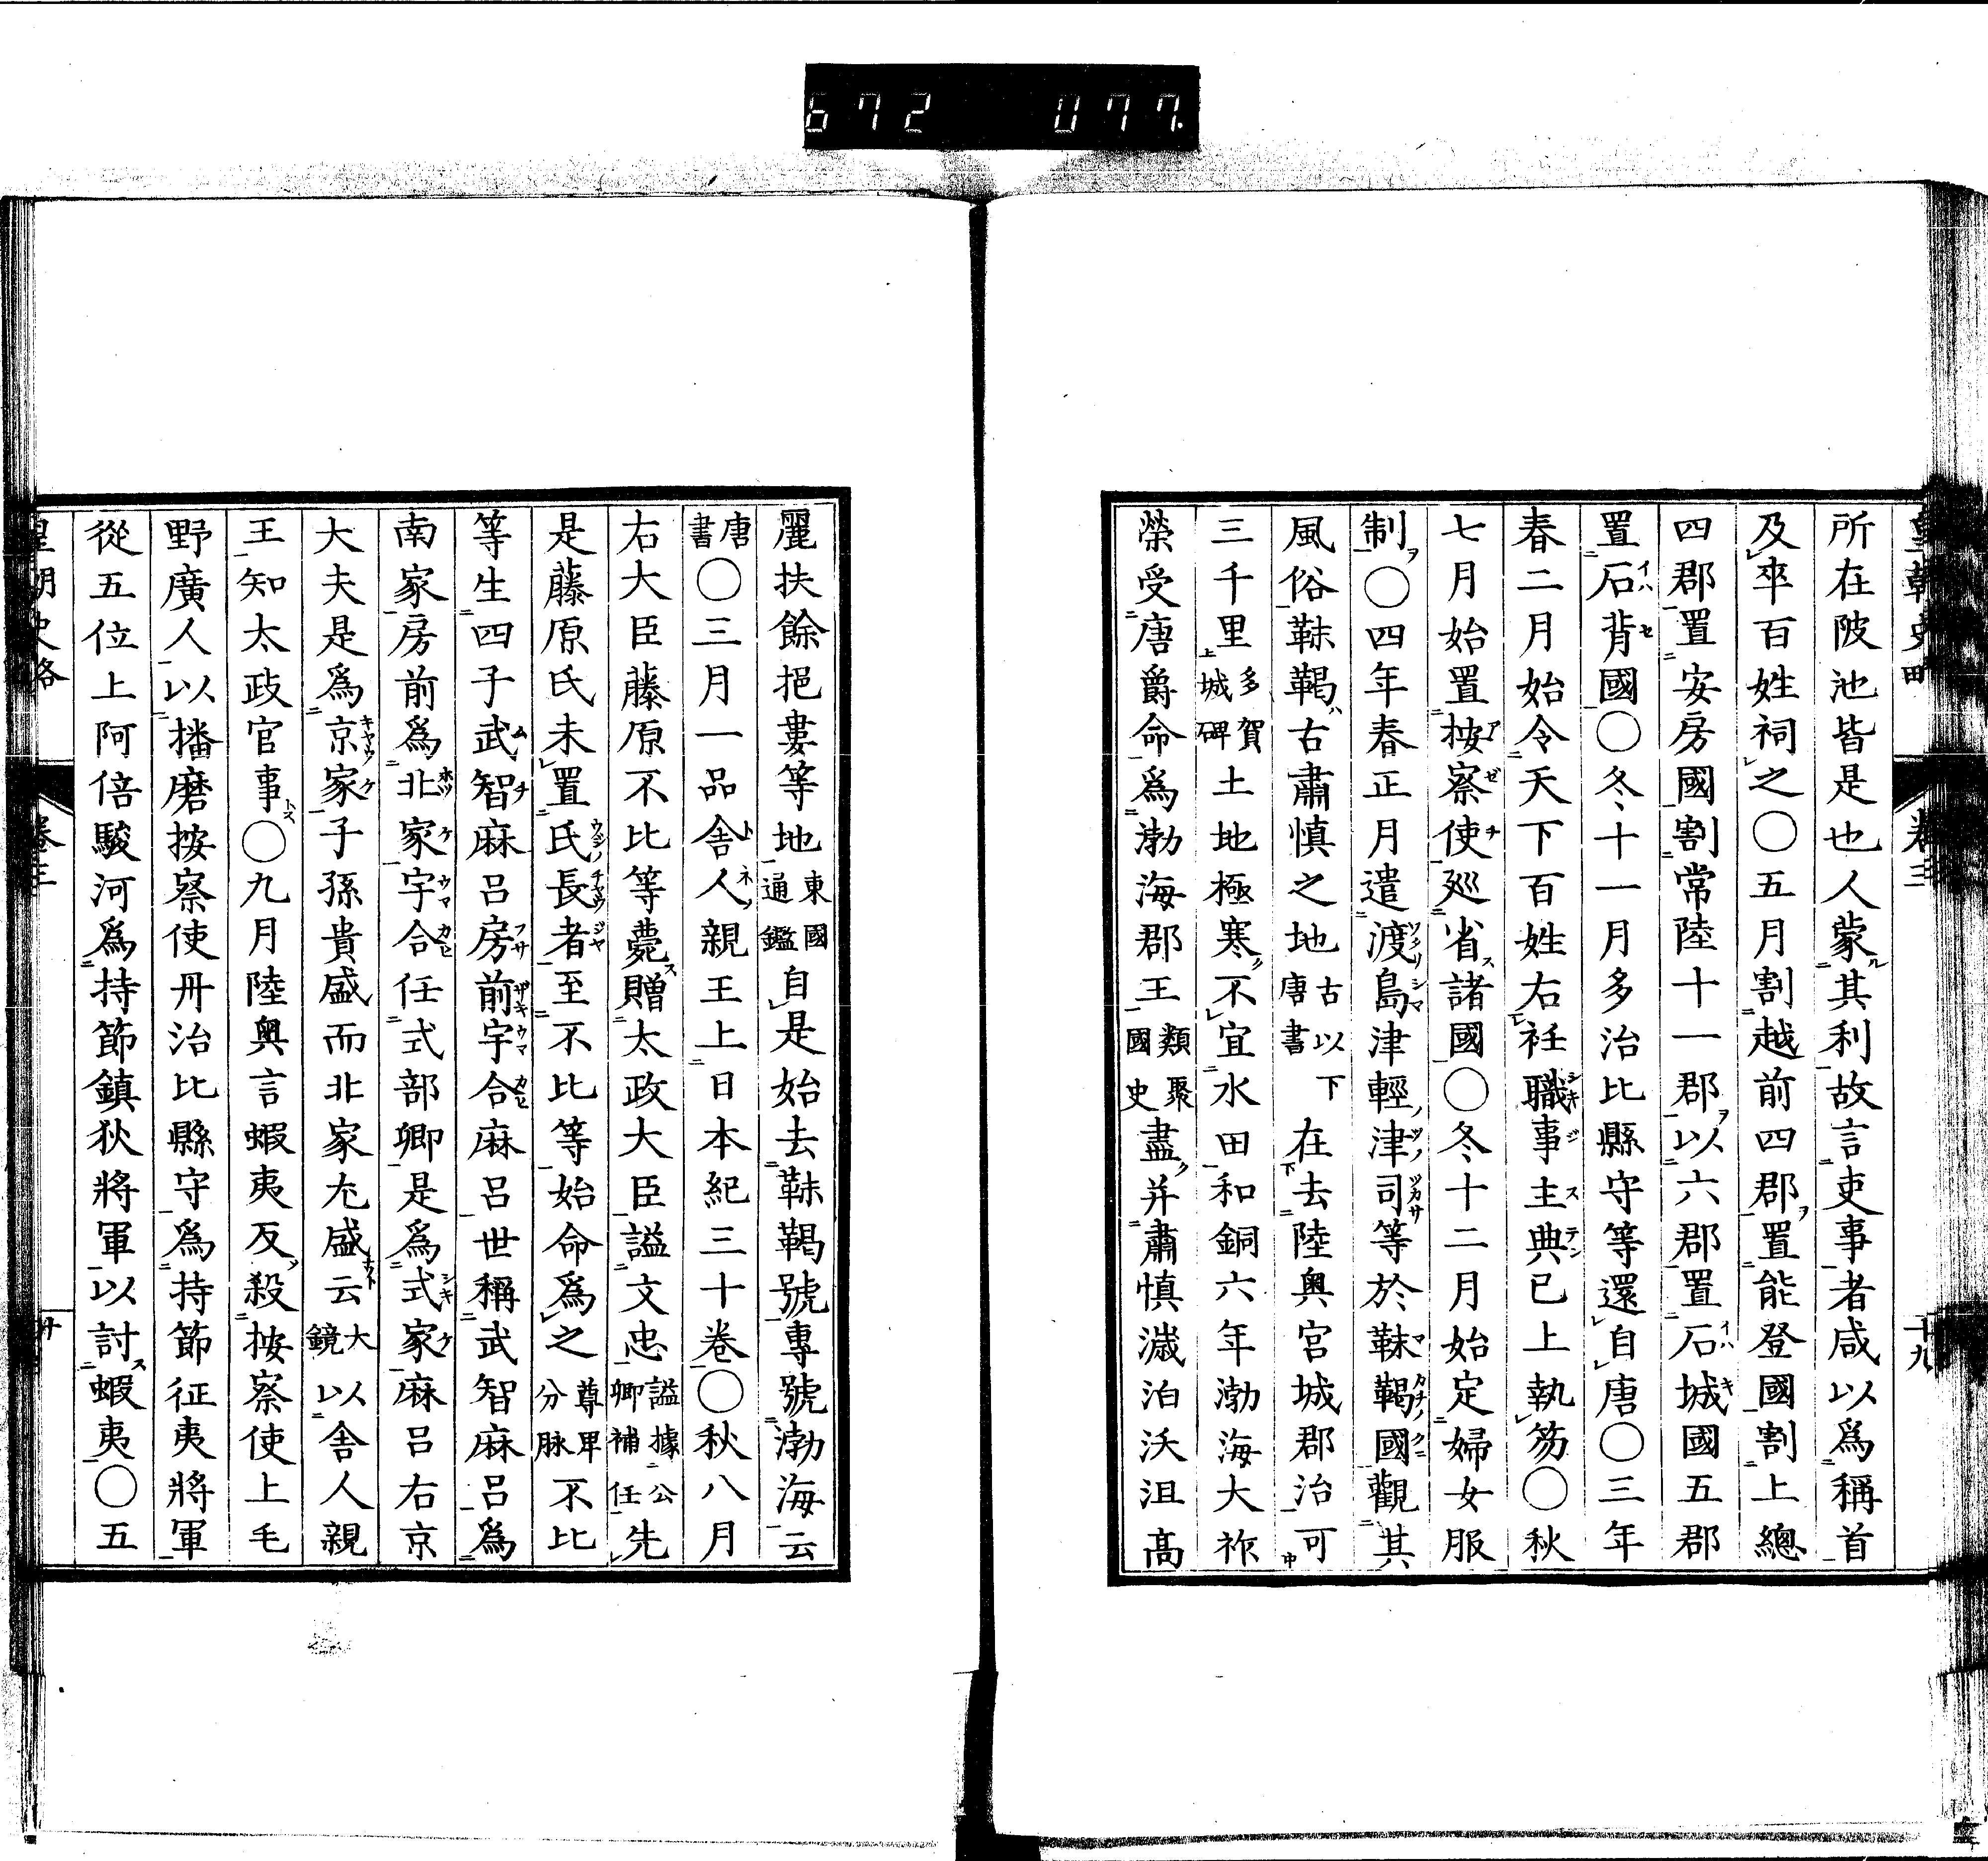 672 077.
皇朝史略 卷三 十九
所在陂池皆是也人蒙其利故言吏事者咸以爲稱首
及卒百姓祠之〇五月割越前四郡置能登國割上總
四郡置安房國割常陸十一郡以六郡置石城國五郡
置石背國〇冬十一月多治比縣守等還自唐〇三年
春二月始令天下百姓右衽職事主典已上執笏〇秋
七月始置按察使廵省諸國〇冬十二月始定婦女服
制〇四年春正月遣渡島津輕津司等於靺鞨國觀其
風俗靺鞨古肅慎之地古以下唐書在去陸奥宮城郡治可
三千里多賀城碑土地極寒不宜水田和銅六年渤海大祚
榮受唐爵命爲渤海郡王類聚國史盡并肅慎濊泊沃沮高
麗扶餘挹婁等地東國通鑑自是始去靺鞨號專號渤海云
唐書〇三月一品舎人親王上日本紀三十卷〇秋八月
右大臣藤原不比等薨贈太政大臣謚文忠謚據公卿補任先
是藤原氏未置氏長者至不比等始命爲之尊卑分脉不比
等生四子武智麻呂房前宇合麻呂世稱武智麻呂爲
南家房前爲北家宇合任式部卿是爲式家麻呂右京
大夫是爲京家子孫貴盛而北家尢盛云大鏡以舎人親
王知太政官事〇九月陸奥言蝦夷反殺按察使上毛
野廣人以播磨按察使丹治比縣守爲持節征夷將軍
從五位上阿倍駿河爲持節鎮狄將軍以討蝦夷〇五
皇朝史略 卷三 廿